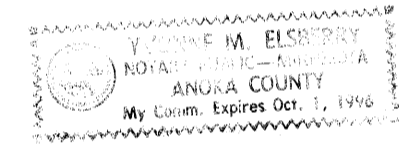 YVONNE M. ELSBERRY
NOTARY PUBLIC—MINNESOTA
ANOKA COUNTY
My Comm. Expires Oct. 1, 1996